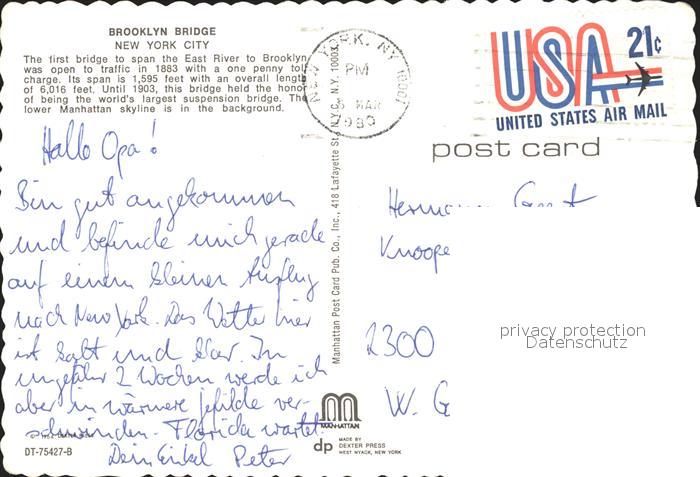 BROOKLYN BRIDGE
NEW YORK CITY
The first bridge to span the East River to Brooklyn
was open to traffic in 1883 with a one penny toll
charge. Its span is 1,595 feet with an overall length
of 6,016 feet. Until 1903, this bridge held the honor
of being the world's largest suspension bridge. The
lower Manhattan skyline is in the background.
Hallo Opa!
Bin gut angekommen
und befinde mich gerade
auf einem kleinen Ausflug
nach New York. Das Wetter hier
ist kalt und klar. In
ungefähr 2 Wochen werde ich
aber in wärmere Gefilde ver-
schwinden. Florida wartet.
Dein Enkel Peter
DT-75427-B
Manhattan Post Card Pub. Co., Inc., 418 Lafayette St., N.Y.C. N.Y. 10003
NEW YORK, NY
PM
MAR
USA 21¢
UNITED STATES AIR MAIL
post card
Knoope
2300
W. G
privacy protection
Datenschutz
MANHATTAN
dp
MADE BY
DEXTER PRESS
WEST NYACK, NEW YORK